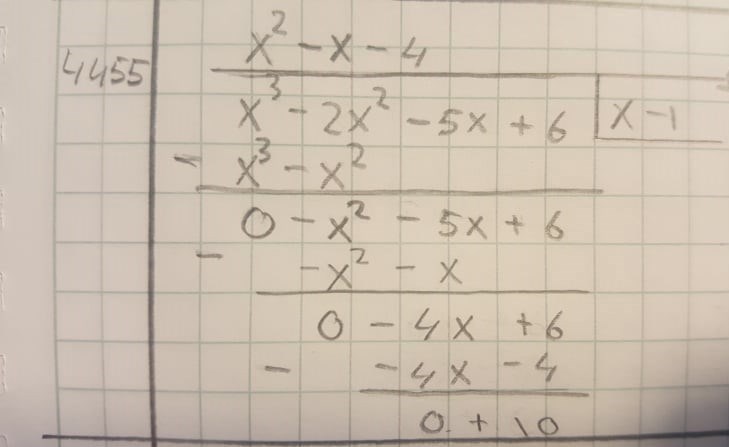 x² - x - 4
4455
x³ - 2x² - 5x + 6 | x - 1
- x³ - x²
0 - x² - 5x + 6
- -x² - x
0 - 4x + 6
- -4x - 4
0 + 10